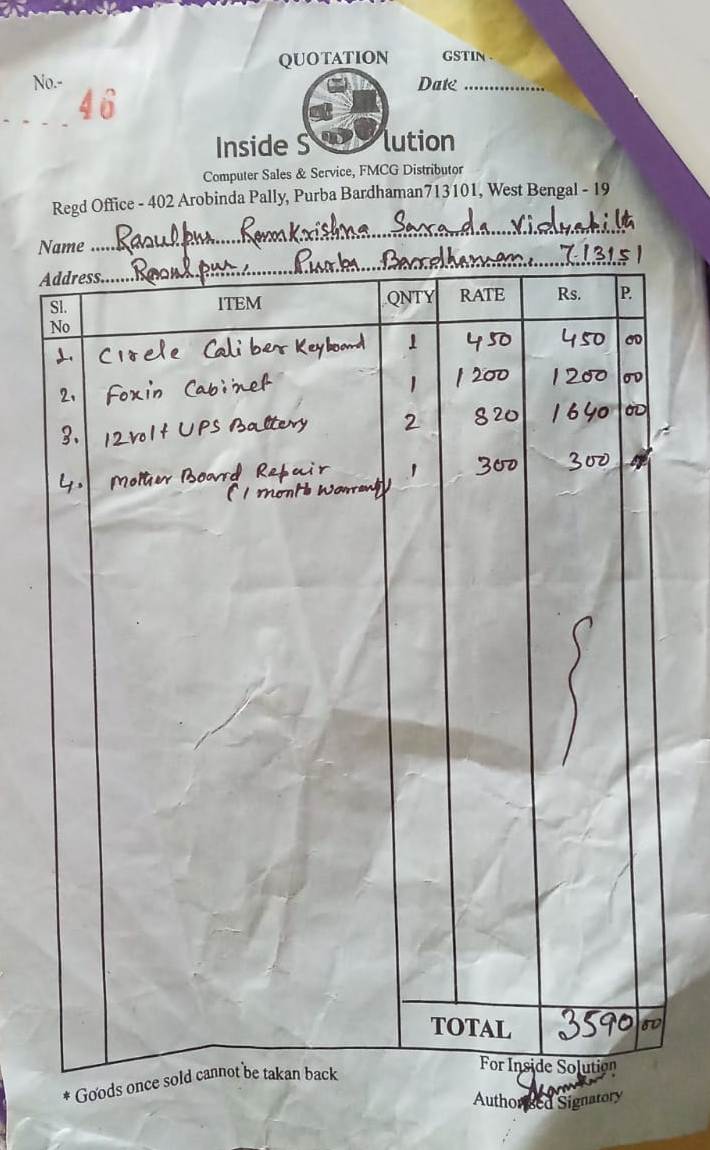 QUOTATION GSTIN -
No.- 46 Date ................
Inside Solution
Computer Sales & Service, FMCG Distributor
Regd Office - 402 Arobinda Pally, Purba Bardhaman713101, West Bengal - 19
Name ..... Rasulpur Ramkrishna Sarada Vidyabith
Address....... Rasulpur, Purba Bardhaman, 713151
Sl. No ITEM QNTY RATE Rs. P.
1. Circle Caliber Keyboard 1 450 450 00
2. Foxin Cabinet 1 1200 1200 00
3. 12volt UPS Battery 2 820 1640 00
4. Mother Board Repair 1 300 300
(1 month warranty)
TOTAL 3590 00
* Goods once sold cannot be takan back
For Inside Solution
Authorised Signatory